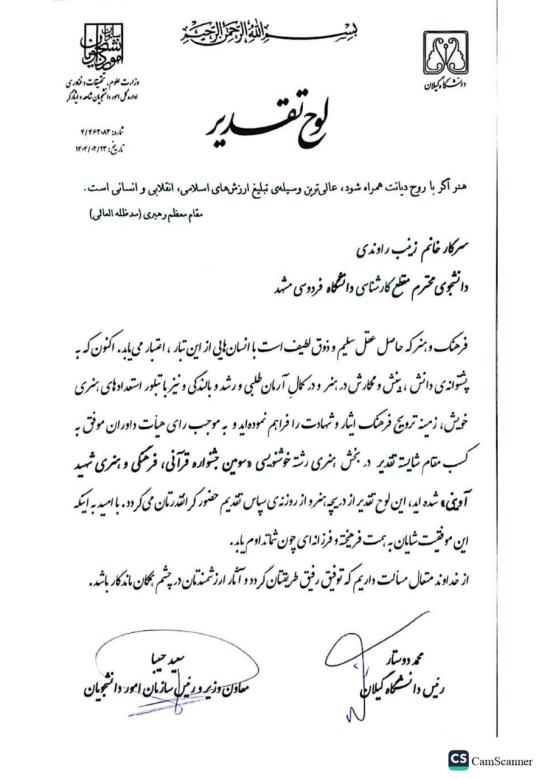 بسم الله الرحمن الرحیم
سازمان امور دانشجویان
وزارت علوم، تحقیقات و فناوری
اداره کل امور دانشجویان شاهد و ایثارگر
شماره: ۴/۲۶۳۰۸۳
تاریخ: ۱۴۰۲/۰۴/۲۳
دانشگاه گیلان
لوح تقدیر
هنر اگر با روح دیانت همراه شود، عالی‌ترین وسیله‌ی تبلیغ ارزش‌های اسلامی، انقلابی و انسانی است.
مقام معظم رهبری (مدظله العالی)
سرکار خانم زینب راوندی
دانشجوی محترم مقطع کارشناسی دانشگاه فردوسی مشهد
فرهنگ و هنر که حاصل عقل سلیم و ذوق لطیف است با انسان‌هایی از این تبار، اعتبار می‌یابد. اکنون که به
پشتوانه‌ی دانش، بینش و نگارش در هنر و در کمال آرمان طلبی و رشد و بالندگی و نیز با تبلور استعدادهای هنری
خویش، زمینه ترویج فرهنگ ایثار و شهادت را فراهم نموده‌اید و به موجب رای هیأت داوران موفق به
کسب مقام شایسته تقدیر در بخش هنری رشته خوشنویسی «سومین جشنواره قرآنی، فرهنگی و هنری شهید
آوینی» شده اید، این لوح تقدیر از دریچه هنر و از روزنه‌ی سپاس تقدیم حضور گرانقدرتان می‌گردد. با امید به اینکه
این موفقیت شایان به همت فرهیخته و فرزانه‌ای چون شما تداوم یابد.
از خداوند متعال مسألت داریم که توفیق رفیق طریقتان گردد و آثار ارزشمندتان در چشم همگان ماندگار باشد.
محمد دوستار
رئیس دانشگاه گیلان
سعید حبیبا
معاون وزیر و رئیس سازمان امور دانشجویان
CS CamScanner